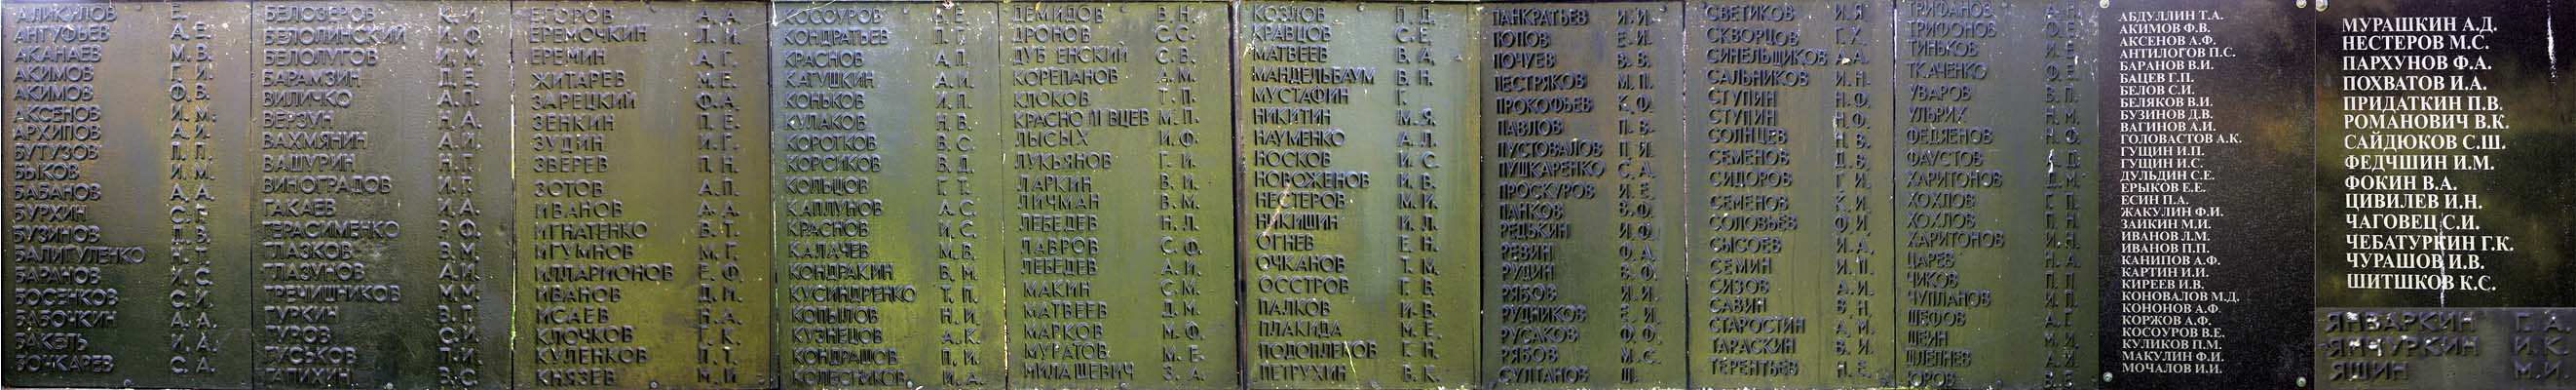 АЛИКУЛОВ Е.
АНТУФЬЕВ А.Е.
АКАНАЕВ М.В.
АКИМОВ Г.И.
АКИМОВ Ф.В.
АКСЕНОВ И.М.
АРХИПОВ А.И.
БУТУЗОВ П.П.
БЫКОВ И.М.
БАБАНОВ А.А.
БУРХИН С.Г.
БУЗИНОВ Д.В.
БАЛИГУЛЕНКО Н.Т.
БАРАНОВ И.С.
БОСЕНКОВ С.И.
БАБОЧКИН А.А.
БАКЕЛЬ И.А.
БОЧКАРЕВ С.А.
БЕЛОЗЕРОВ К.И.
БЕЛОЛИНСКИЙ И.Ф.
БЕЛОЛУГОВ И.М.
БАРАМЗИН Д.Е.
ВИЛИЧКО А.П.
ВЕРЗУН Н.А.
ВАХМЯНИН А.И.
ВАШУРИН Н.Г.
ВИНОГРАДОВ И.Г.
ГАКАЕВ И.А.
ГЕРАСИМЕНКО Р.Ф.
ГЛАЗКОВ В.М.
ГЛАЗУНОВ А.И.
ГРЕЧИШНИКОВ М.М.
ГУРКИН В.П.
ГУРОВ С.И.
ГУСЬКОВ П.И.
ГАПИХИН В.С.
ЕГОРОВ А.А.
ЕРЕМОЧКИН Л.И.
ЕРЕМИН А.Г.
ЖИТАРЕВ М.Е.
ЗАРЕЦКИЙ Ф.А.
ЗЕНКИН П.Е.
ЗУДИН И.Г.
ЗВЕРЕВ П.Н.
ЗОТОВ А.П.
ИВАНОВ А.А.
ИГНАТЕНКО В.Т.
ИГУМНОВ М.Г.
ИЛЛАРИОНОВ Е.Ф.
ИВАНОВ Д.И.
ИСАЕВ Н.А.
КЛОЧКОВ Г.К.
КУЛЕНКОВ П.Т.
КНЯЗЕВ М.И.
КОСОУРОВ В.Е.
КОНДРАТЬЕВ П.Г.
КРАСНОВ А.П.
КАТУШКИН А.И.
КОНЬКОВ И.П.
КУЛАКОВ Н.В.
КОРОТКОВ В.С.
КОРСИКОВ В.Д.
КОЛЬЦОВ Г.Т.
КАПЛУНОВ А.С.
КРАСНОВ И.С.
КАЛАЧЕВ М.В.
КОНДРАКИН В.М.
КУСИНДРЕНКО Т.П.
КОПЫЛОВ Н.И.
КУЗНЕЦОВ А.К.
КОНДРАШОВ П.И.
КОЛЕСНИКОВ И.А.
ДЕМИДОВ В.Н.
ДРОНОВ С.С.
ДУБ ЕНСКИЙ С.В.
КОРЕПАНОВ А.М.
КЛОКОВ Т.П.
КРАСНО ВЦЕВ М.П.
ЛЫСЫХ И.Ф.
ЛУКЬЯНОВ Г.И.
ЛАРКИН В.И.
ЛИЧМАН В.М.
ЛЕБЕДЕВ Н.Л.
ЛАВРОВ С.Ф.
ЛЕБЕДЕВ А.И.
МАКИН С.М.
МАТВЕЕВ Д.М.
МАРКОВ М.Ф.
МУРАТОВ М.Е.
МИЛАШЕВИЧ З.А.
КОЗЛОВ П.Д.
КРАВЦОВ С.Е.
МАТВЕЕВ В.А.
МАНДЕЛЬБАУМ В.Н.
МУСТАФИН Г.
НИКИТИН М.Я.
НАУМЕНКО А.Л.
НОСКОВ И.С.
НОВОЖЕНОВ И.В.
НЕСТЕРОВ М.И.
НИКИШИН И.Л.
ОГНЕВ Е.Н.
ОЧКАНОВ Т.М.
ОССТРОВ Г.В.
ПАЛКОВ И.В.
ПЛАКИДА М.Е.
ПОДОПЛЕКОВ Г.Н.
ПЕТРУХИН В.К.
ПАНКРАТЬЕВ И.И.
ПОПОВ Е.И.
ПОЧУЕВ В.В.
ПЕСТРЯКОВ М.П.
ПРОКОФЬЕВ К.Ф.
ПАВЛОВ П.В.
ПУСТОВАЛОВ П.Я.
ПУШКАРЕНКО С.А.
ПРОСКУРОВ И.Е.
ПАНКОВ В.Ф.
РЕДЬКИН И.Ф.
РЕВИН Ф.А.
РУДИН В.Ф.
РЯБОВ И.И.
РУДНИКОВ Е.И.
РУСАКОВ Ф.Ф.
РЯБОВ М.С.
СУЛТАНОВ Ш.
СВЕТИКОВ И.Я.
СКВОРЦОВ Г.Х.
СИНЕЛЬЩИКОВ А.А.
САЛЬНИКОВ И.Н.
СТУПИН Н.Ф.
СТУПИН Н.Ф.
СОЛНЦЕВ Н.В.
СЕМЕНОВ Д.В.
СИДОРОВ Г.И.
СЕМЕНОВ К.И.
СОЛОВЬЕВ Ф.И.
СЫСОЕВ И.А.
СЕМИН И.П.
СИЗОВ А.И.
САВИН В.Н.
СТАРОСТИН А.И.
ТАРАСКИН В.И.
ТЕРЕНТЬЕВ Н.Е.
ТРИФАНОВ
ТРИФОНОВ Ф.Е.
ТИНЬКОВ И.Е.
ТКАЧЕНКО Ф.Е.
УВАРОВ В.П.
УЛЬРИХ Н.М.
ФЕДЯЕНОВ Н.Ф.
ФАУСТОВ А.Д.
ХАРИТОНОВ Д.М.
ХОХЛОВ Г.П.
ХОХЛОВ П.Н.
ХАРИТОНОВ И.Н.
ЦАРЕВ Н.А.
ЧИКОВ П.П.
ЧУПЛАНОВ И.П.
ШЕФОВ А.Г.
ШЕИН М.И.
ШЛЕПНЕВ А.И.
ЮРОВ В.Е.
АБДУЛЛИН Т.А.
АКИМОВ Ф.В.
АКСЕНОВ А.Ф.
АНТИЛОГОВ П.С.
БАРАНОВ В.И.
БАЦЕВ Г.П.
БЕЛОВ С.И.
БЕЛЯКОВ В.И.
БУЗИНОВ Д.В.
ВАГИНОВ А.И.
ГОЛОВАСТОВ А.К.
ГУЩИН И.П.
ГУЩИН И.С.
ДУЛЬДИН С.Е.
ЕРЫКОВ Е.Е.
ЕСИН П.А.
ЖАКУЛИН Ф.И.
ЗАИКИН М.И.
ИВАНОВ Л.М.
ИВАНОВ П.П.
КАНИПОВ А.Ф.
КАРТИН И.И.
КИРЕЕВ И.В.
КОНОВАЛОВ М.Д.
КОНОНОВ А.Ф.
КОРЖОВ А.Ф.
КОСОУРОВ В.Е.
КУЛИКОВ П.М.
МАКУЛИН Ф.И.
МОЧАЛОВ И.И.
МУРАШКИН А.Д.
НЕСТЕРОВ М.С.
ПАРХУНОВ Ф.А.
ПОХВАТОВ И.А.
ПРИДАТКИН П.В.
РОМАНОВИЧ В.К.
САЙДЮКОВ С.Ш.
ФЕДЧШИН И.М.
ФОКИН В.А.
ЦИВИЛЕВ И.Н.
ЧАГОВЕЦ С.И.
ЧЕБАТУРКИН Г.К.
ЧУРАШОВ И.В.
ШИТШКОВ К.С.
ЯНВАРКИН Г.А.
ЯНЧУРКИН И.К.
ЯШИН М.И.